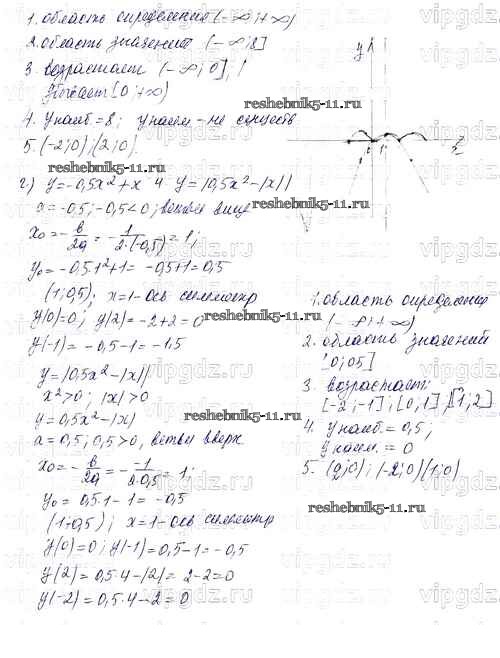 1. область определения (-∞; +∞)
2. область значений (-∞; 8]
3. возрастает (-∞; 0];
убывает [0; +∞)
4. y наиб = 8; y наим - не существ
5. (-2; 0); (2; 0).
г) y = -0,5x² + x и y = |0,5x² - |x||
a = -0,5; -0,5 < 0; ветви вниз
x₀ = -в/2a = -1/2·(-0,5) = 1;
y₀ = -0,5·1² + 1 = -0,5 + 1 = 0,5
(1; 0,5); x = 1 - ось симметр
y(0) = 0; y(2) = -2 + 2 = 0
y(-1) = -0,5 - 1 = -1,5
y = |0,5x² - |x||
x² > 0; |x| > 0
y = 0,5x² - |x|
a = 0,5; 0,5 > 0, ветви вверх
x₀ = -в/2a = - -1/2·0,5 = 1;
y₀ = 0,5·1 - 1 = -0,5
(1; -0,5); x = 1 - ось симметр
y(0) = 0; y(-1) = 0,5 - 1 = -0,5
y(2) = 0,5·4 - |2| = 2 - 2 = 0
y(-2) = 0,5·4 - 2 = 0
y
x
1. область определения
(-∞; +∞)
2. область значений
[0; 0,5]
3. возрастает:
[-2; -1]; [0; 1]; [1; 2]
4. y наиб. = 0,5;
y наим. = 0
5. (0; 0); (-2; 0) (1; 0)
reshebnik5-11.ru
reshebnik5-11.ru
reshebnik5-11.ru
reshebnik5-11.ru
reshebnik5-11.ru
reshebnik5-11.ru
reshebnik5-11.ru
vipgdz.ru